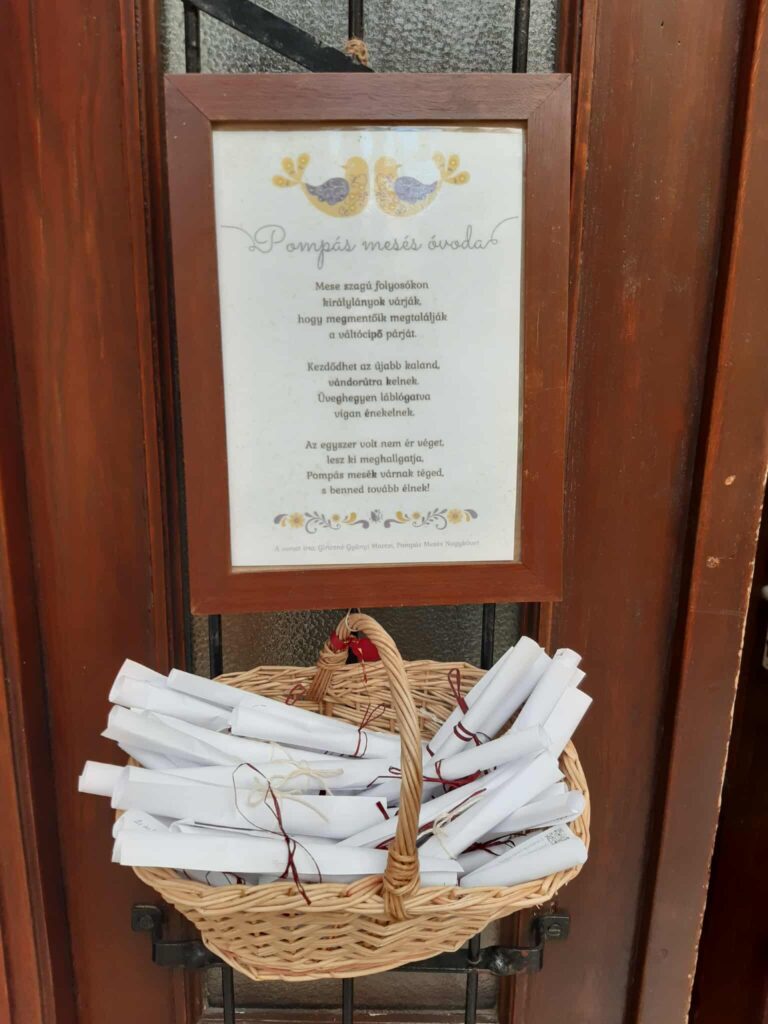 Pompás mesés óvoda
Mese szagú folyosókon
királylányok várják,
hogy megmentőik megtalálják
a váltócipő párját.
Kezdődhet az újabb kaland,
vándorútra kelnek.
Üveghegyen láblógatva
vígan énekelnek.
Az egyszer volt nem ér véget,
lesz ki meghallgatja,
Pompás mesék várnak téged,
s benned tovább élnek!
A verset írta: Gyöngyi Pompás Mesés